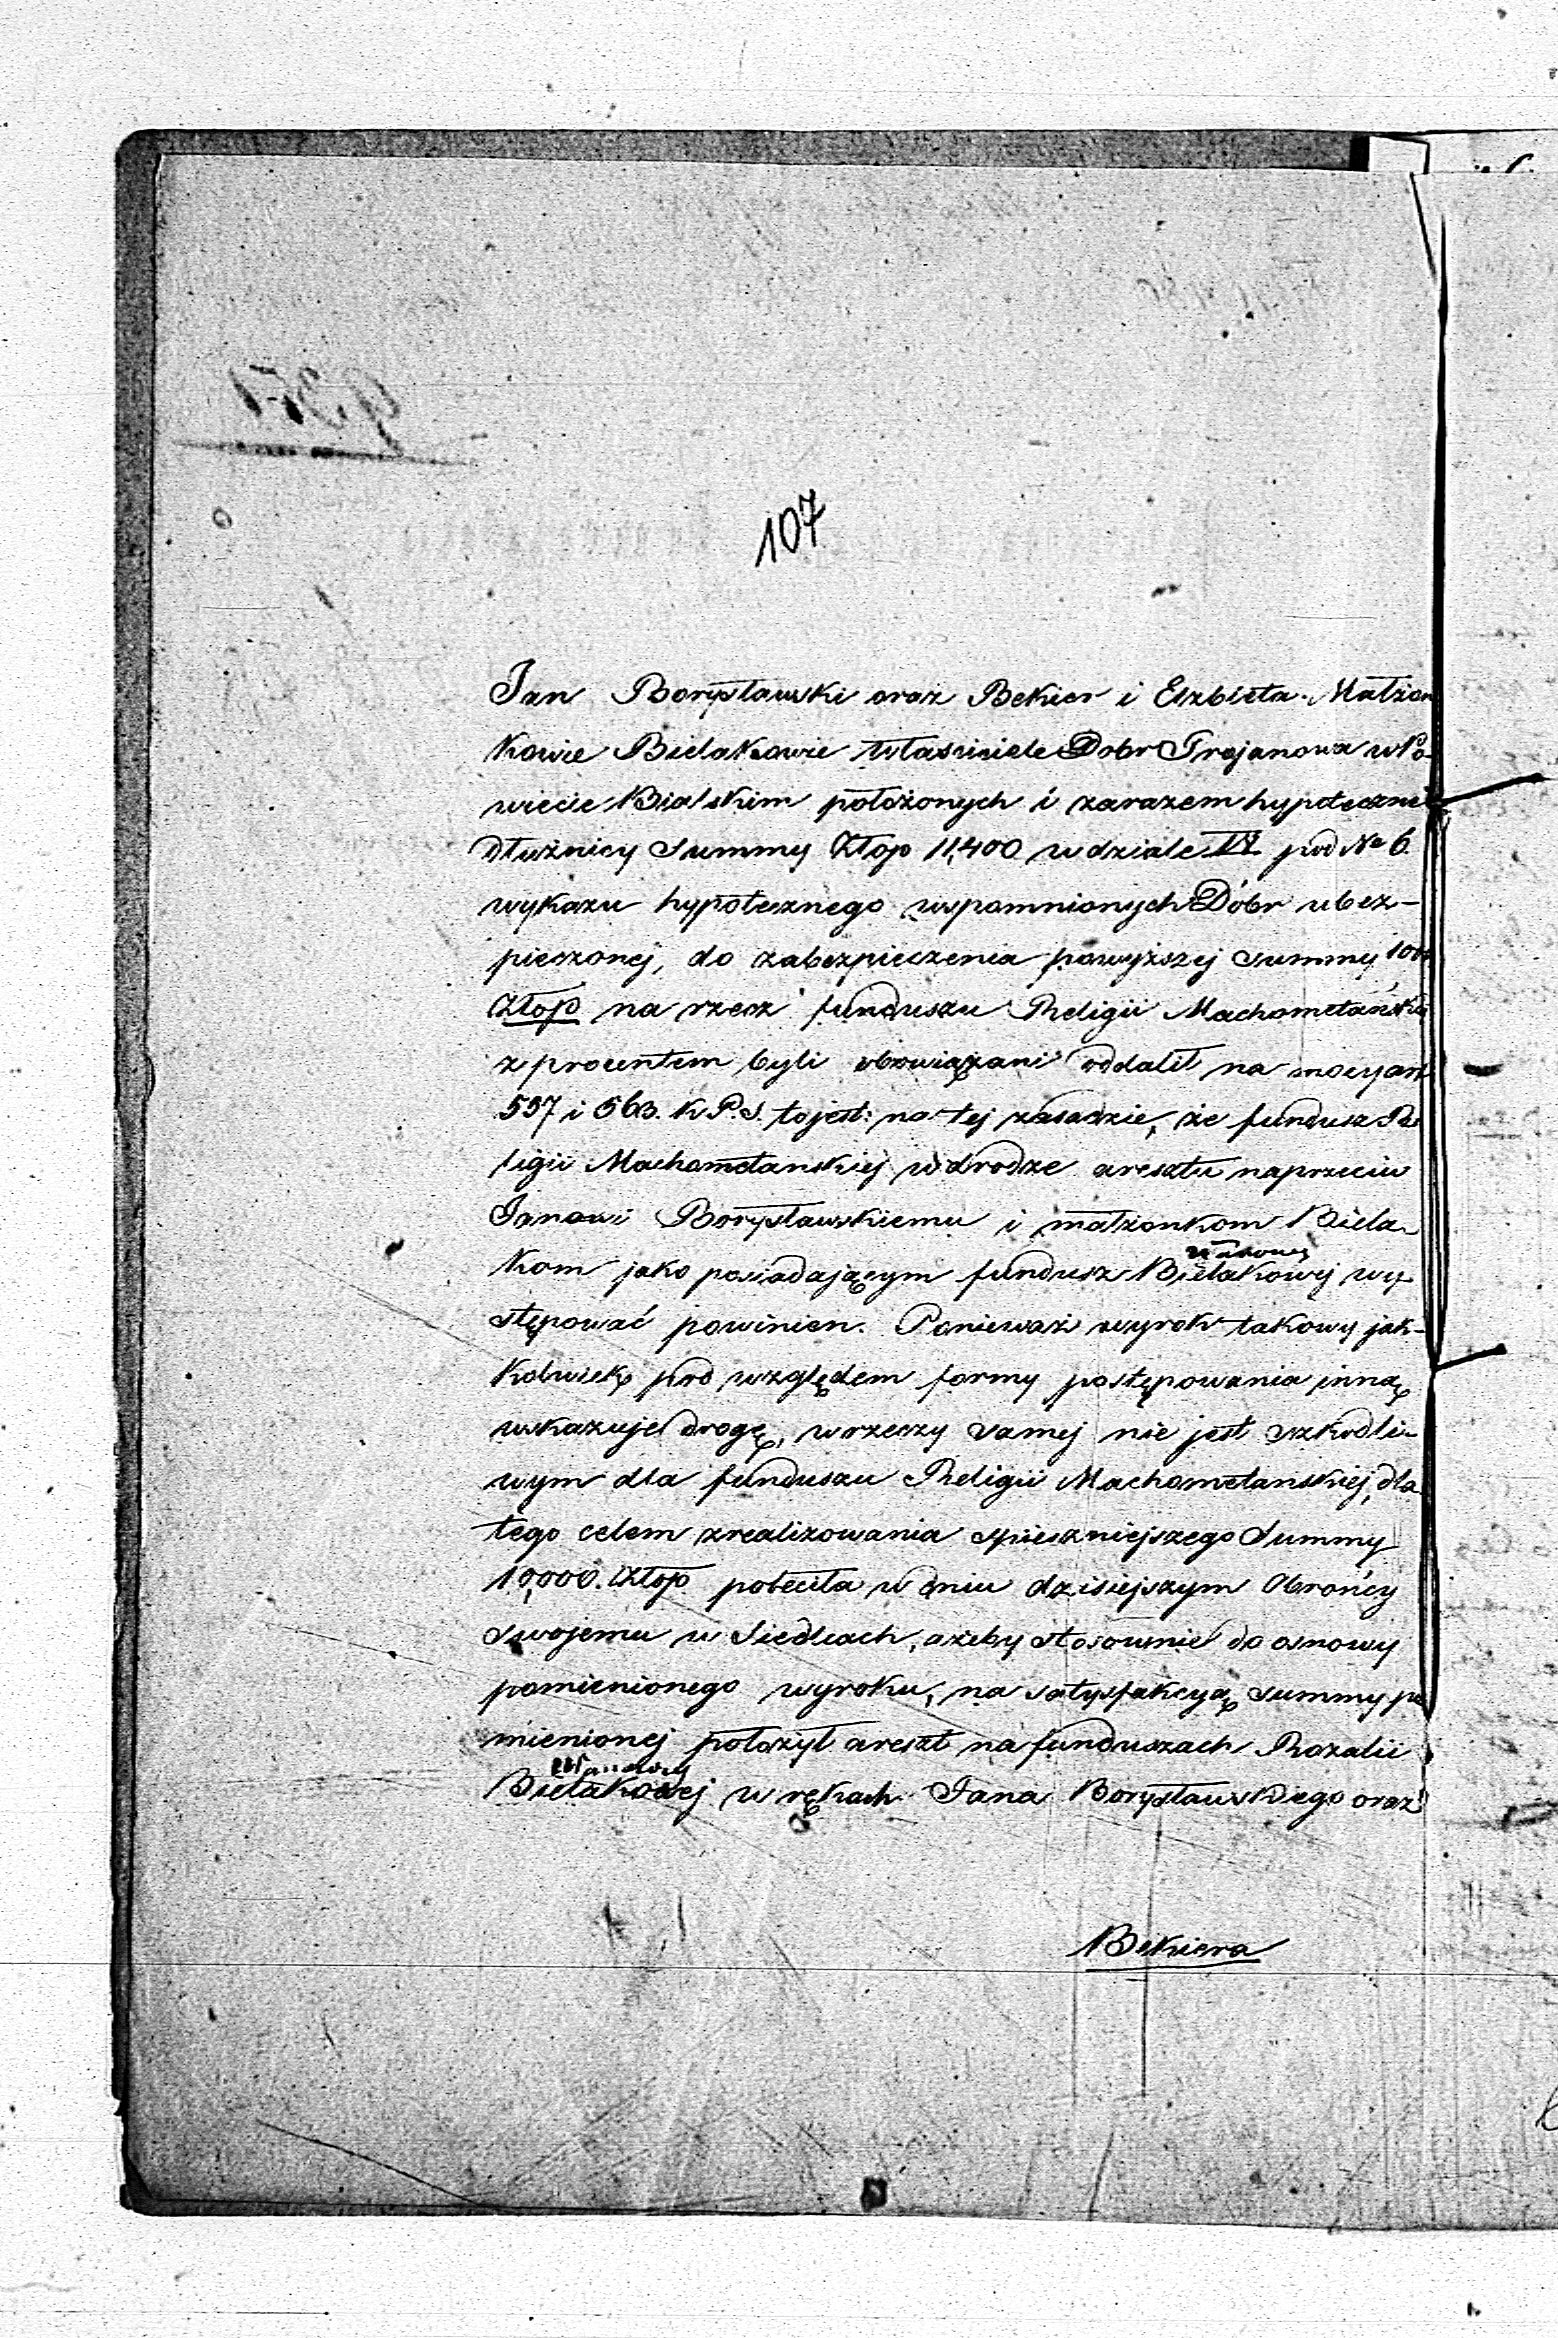 107
Jan Borysławski oraz Bekier i Elzbieta Małżon
kowie Bielakowie Właściciele Dobr Trojanowa w Po-
wiecie Bialskim położonych i zarazem hypoteczni
dłużnicy Summy Złop 11,400 w dziale IV pod No 6.
wykazu hypotecznego wspomnionych Dóbr ubez-
pieczonej, do zabezpieczenia powyższej summy
Złop na rzecz funduszu Religii Machometańskiej
z procentem byli obowiązani oddalił na mocy art
557 i 563. K. P. S. to jest: na tej zasadzie, że fundusz Re
ligii Machometanskiej w drodze aresztu naprzeciw
Janowi Borysławskiemu i małżonkom Biela-
kom jako posiadającym fundusz Bielakowej wy-
stępować powinien. Ponieważ wyrok takowy jak-
kolwiek pod względem formy postępowania inną
wskazuje drogę, w rzeczy samej nie jest szkodli-
wym dla funduszu Religii Machometanskiej, dla
tego celem zrealizowania spieszniejszego Summy
10,000. Złop poleciła w dniu dzisiejszym Obrońcy
swojemu w Siedlcach, ażeby stosownie do osnowy
pomienionego wyroku, na satysfakcyą summy po
mienionej położył areszt na funduszach Rozalii
Bielakowej w rękach Jana Borysławskiego oraz
Bekiera